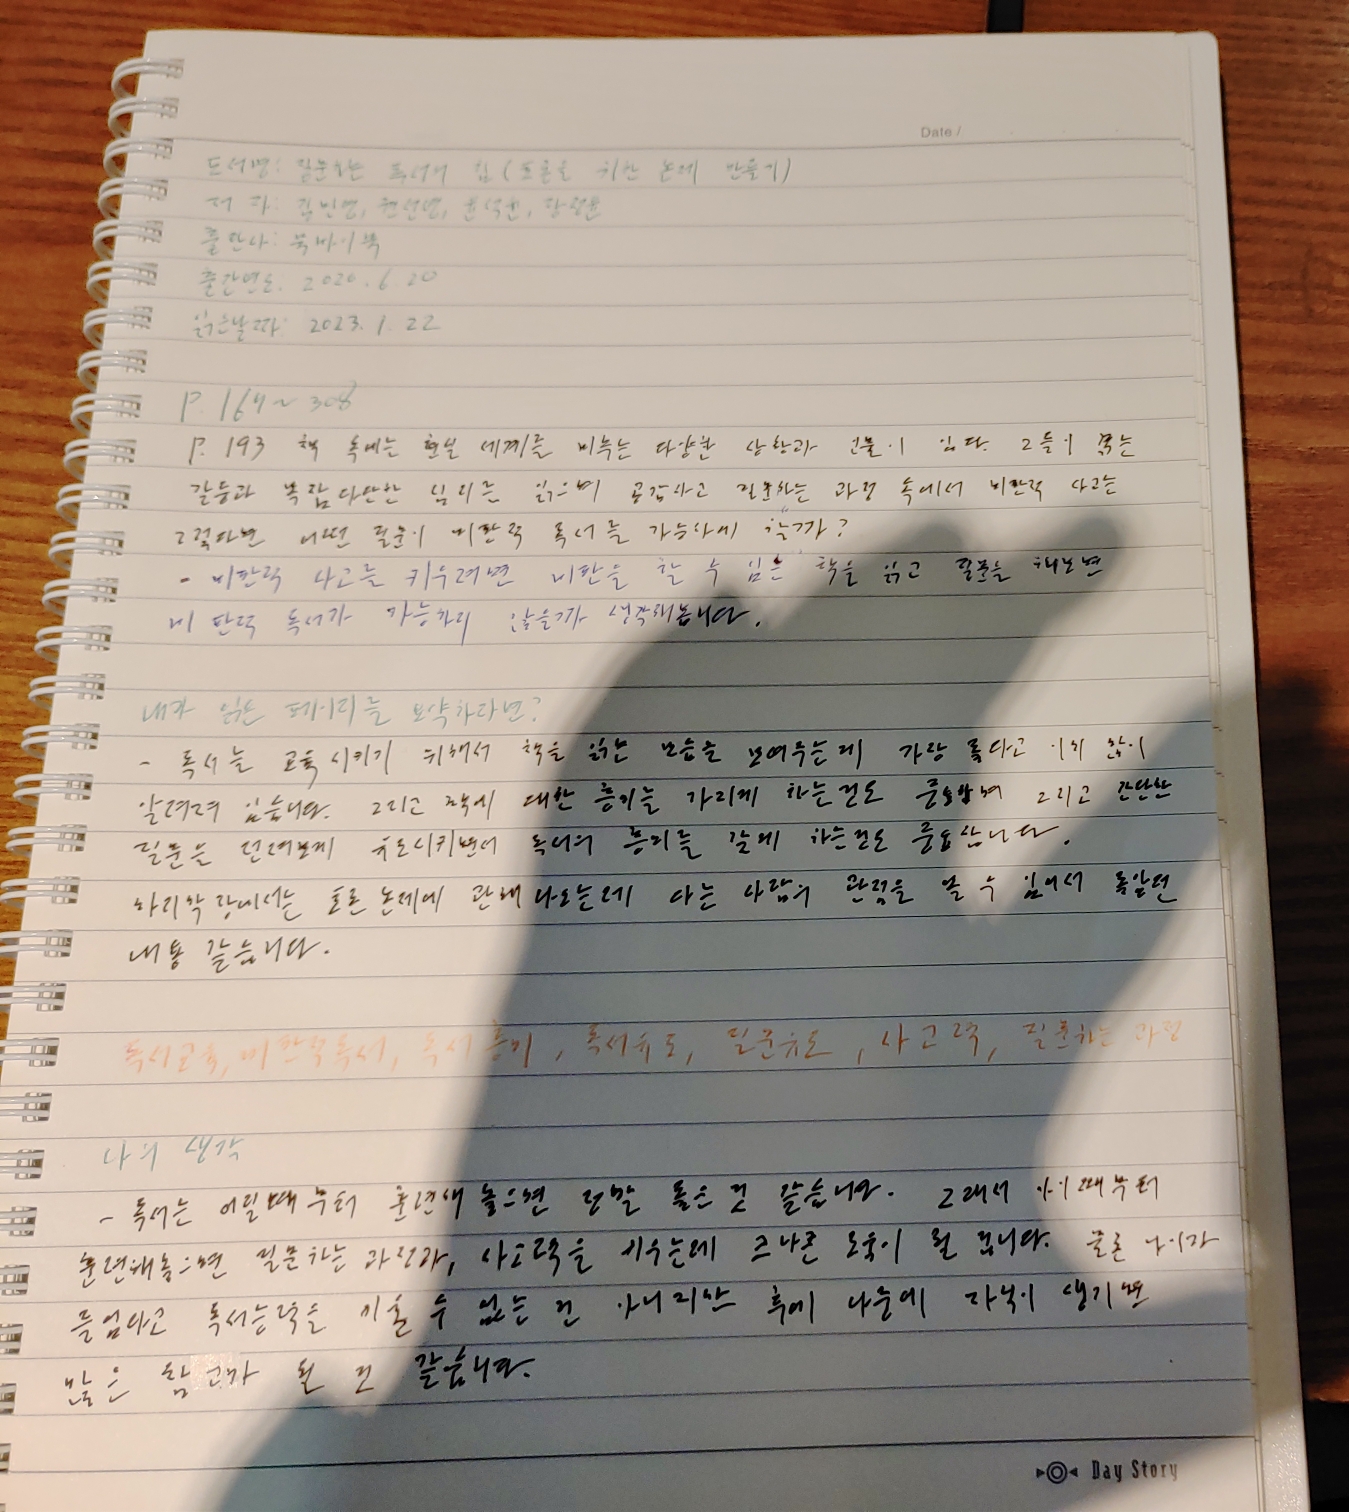 Date /
도서명: 질문하는 독서의 힘 (토론을 위한 논제 만들기)
저 자: 김민영, 권선영, 윤석윤, 장정윤
출판사: 북바이북
출간연도: 2020. 6. 20
읽은날짜: 2023. 1. 22
P. 164~308
P. 193 책 속에는 현실 세계를 비추는 다양한 상황과 인물이 있다. 그들이 겪는
갈등과 복잡다단한 심리를 읽으며 공감하고 질문하는 과정 속에서 비판적 사고는
그렇다면 어떤 질문이 비판적 독서를 가능하게 할까?
- 비판적 사고를 키우려면 비판을 할 수 있는 책을 읽고 질문을 해보면
비판적 독서가 가능하지 않을까 생각해봅니다.
내가 읽은 페이지를 요약하라면?
- 독서는 교육시키기 위해서 책을 읽는 모습을 보여주는게 가장 좋다고 이미 많이
알려져 있습니다. 그리고 책에 대한 흥미를 가지게 하는것도 중요하며 그리고 간단한
질문을 던져보게 유도시키면서 독서의 흥미를 갖게 하는것도 중요합니다.
마지막장에서는 토론논제에 관해 나오는데 다른 사람의 관점을 볼 수 있어서 독특한
내용 같습니다.
독서교육, 비판적독서, 독서흥미, 독서유도, 질문유도, 사고력, 질문하는 과정
나의 생각
- 독서는 어릴때부터 훈련해 놓으면 정말 좋은 것 같습니다. 그래서 아이때부터
훈련해놓으면 질문하는 과정과, 사고력을 키우는데 크나큰 도움이 될 겁니다. 물론 나이가
들었다고 독서능력을 키울 수 없는 건 아니지만 후에 나중에 자녁이 생기면
많은 참고가 될 것 같습니다.
Day Story